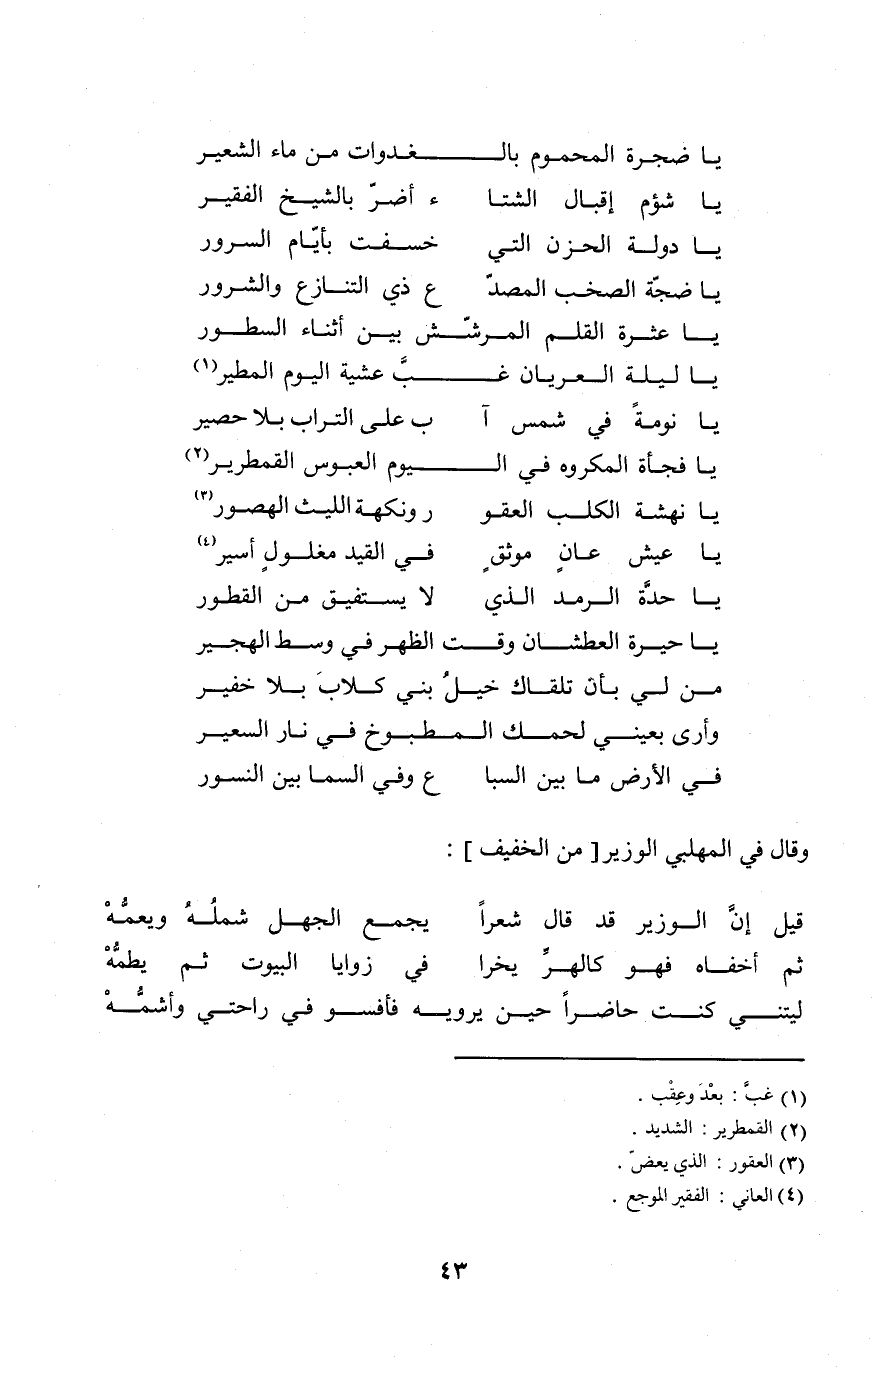 يا ضجرة المحموم بالـغدوات من ماء الشعير
يا شؤم إقبال الشتا ء أضرّ بالشيخ الفقير
يا دولة الحزن التي خسفت بأيّام السرور
يا ضجّة الصخب المصدّ ع ذي التنازع والشرور
يا عثرة القلم المرشّش بين أثناء السطور
يا ليلة العريان غبَّ عشية اليوم المطير(١)
يا نومةً في شمس آ ب على التراب بلا حصير
يا فجأة المكروه في اليوم العبوس القمطرير(٢)
يا نهشة الكلب العقو ر ونكهة الليث الهصور(٣)
يا عيش عانٍ موثقٍ في القيد مغلولٍ أسير(٤)
يا حدَّة الرمد الذي لا يستفيق من القطور
يا حيرة العطشان وقت الظهر في وسط الهجير
من لي بأن تلقاك خيلُ بني كلابَ بلا خفير
وأرى بعيني لحمك المطبوخ في نار السعير
في الأرض ما بين السبا ع وفي السما بين النسور
وقال في المهلبي الوزير [ من الخفيف ] :
قيل إنَّ الوزير قد قال شعراً يجمع الجهل شملُهُ ويعمُّهْ
ثم أخفاه فهو كالهرِّ يخرا في زوايا البيوت ثم يطمُّهْ
ليتني كنت حاضراً حين يرويه فأفسو في راحتي وأشمُّهْ
(١) غبَّ : بعْدَ وعِقْب .
(٢) القمطرير : الشديد .
(٣) العقور : الذي يعضّ .
(٤) العاني : الفقير الموجع .
٤٣